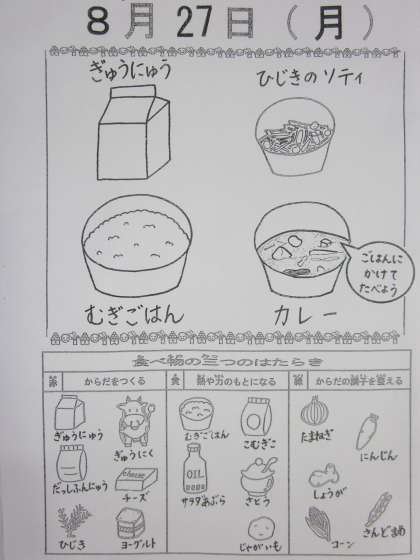 8月27日（月）
ぎゅうにゅう
ひじきのソティ
むぎごはん
カレー
ごはんに
かけて
たべよう
食べ物の三つのはたらき
赤 からだをつくる
黄 熱や力のもとになる
緑 からだの調子を整える
ぎゅうにゅう
ぎゅうにく
だっしふんにゅう
cheese
チーズ
ひじき
ヨーグルト
むぎごはん
こむぎこ
OIL
サラダあぶら
さとう
じゃがいも
たまねぎ
にんじん
しょうが
コーン
さんどまめ